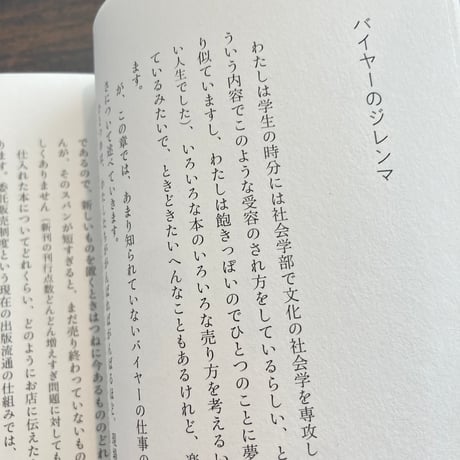 バイヤーのジレンマ
わたしは学生の時分には社会学部で文化の社会学を専攻し
ういう内容でこのような受容のされ方をしているらしい、と
り似ていますし、わたしは飽きっぽいのでひとつのことに夢
い人生でした)、いろいろな本のいろいろな売り方を考えるい
ているみたいで、ときどきたいへんなこともあるけれど、楽
ます。
が、この章では、あまり知られていないバイヤーの仕事の
さについて述べていきます。
であるので、新しいものを置くときはつねに今あるもののどれ
んが、そのスパンが短すぎると、まだ売り終わっていないもの
しくありません（新刊の刊行点数どんどん増えすぎ問題に対しても
仕入れた本についてどれくらい、どのようにお店に伝えた
ります。委託販売制度という現在の出版流通の仕組みでは、